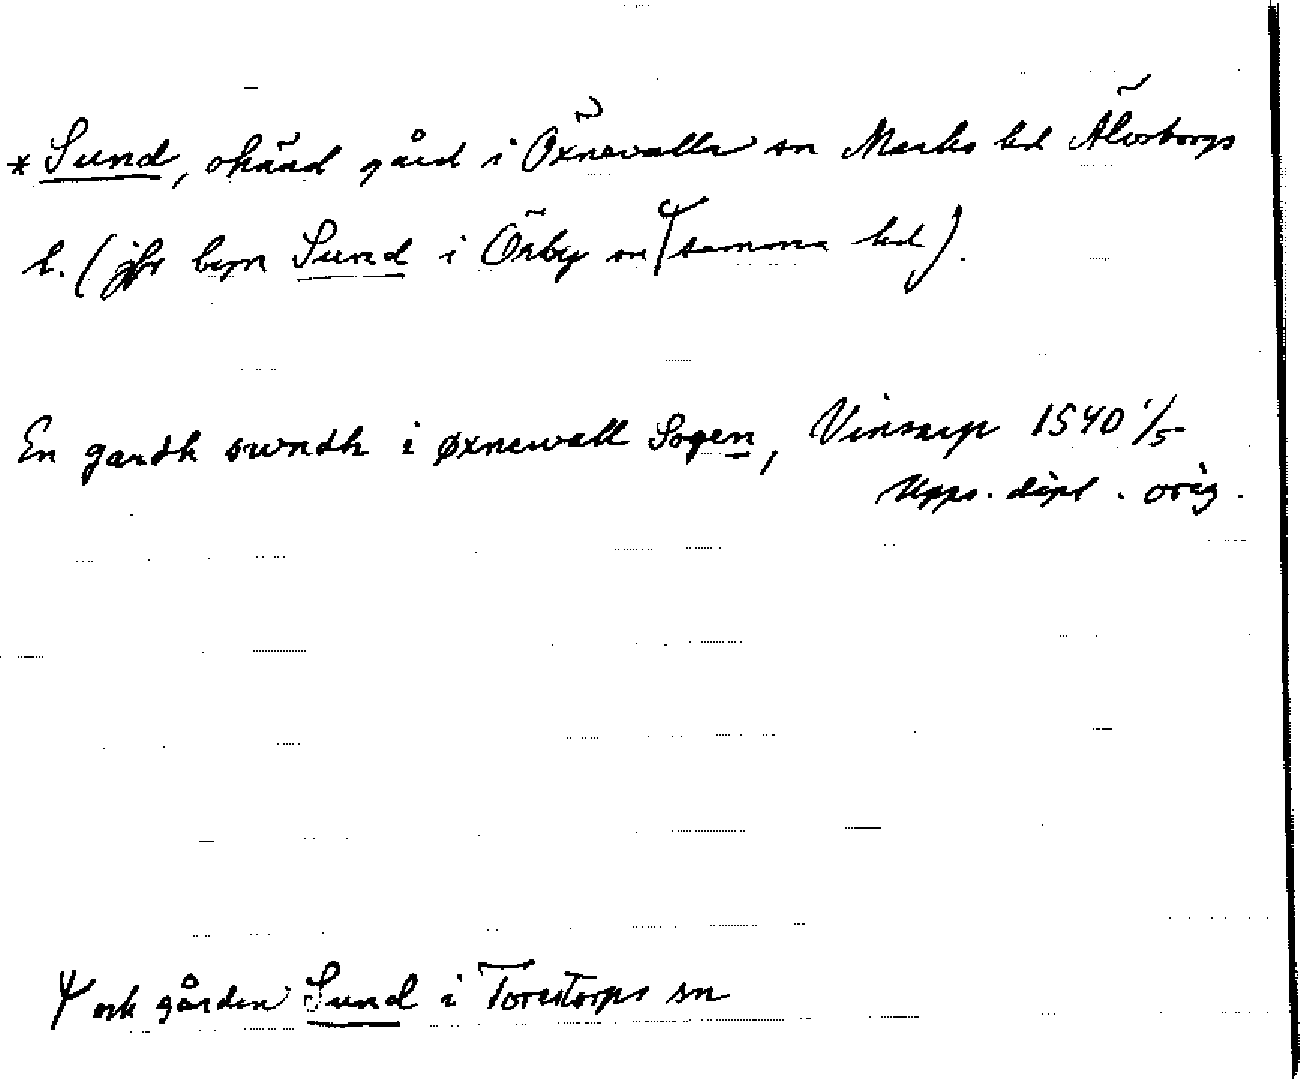 * Sund, okänd gård i Öxnevalla sn Marks hd Älvsborgs
l. (jfr byn Sund i Örby sn ꟛ samma hd).
En gardh swndh i øxnewall Sogen, Vinsarp 1540 1/5
Upps. dipl. orig.
ꟛ och gården Sund i Torestorps sn